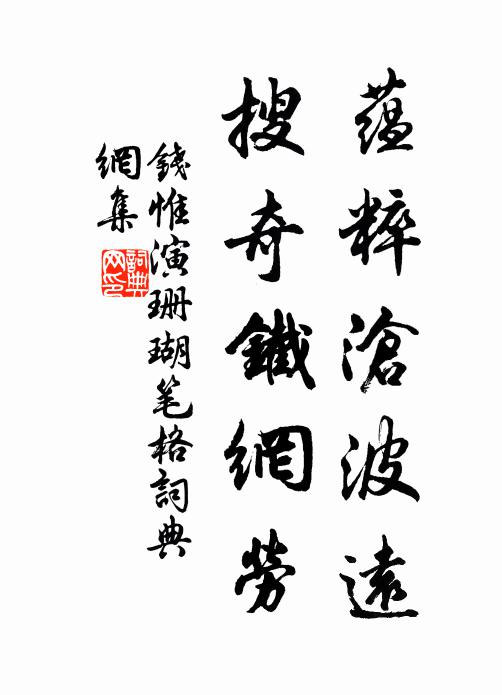 蘊粹滄波遠
搜奇鐵網勞
錢惟演珊瑚笔格詞典
網集
詞典
网印